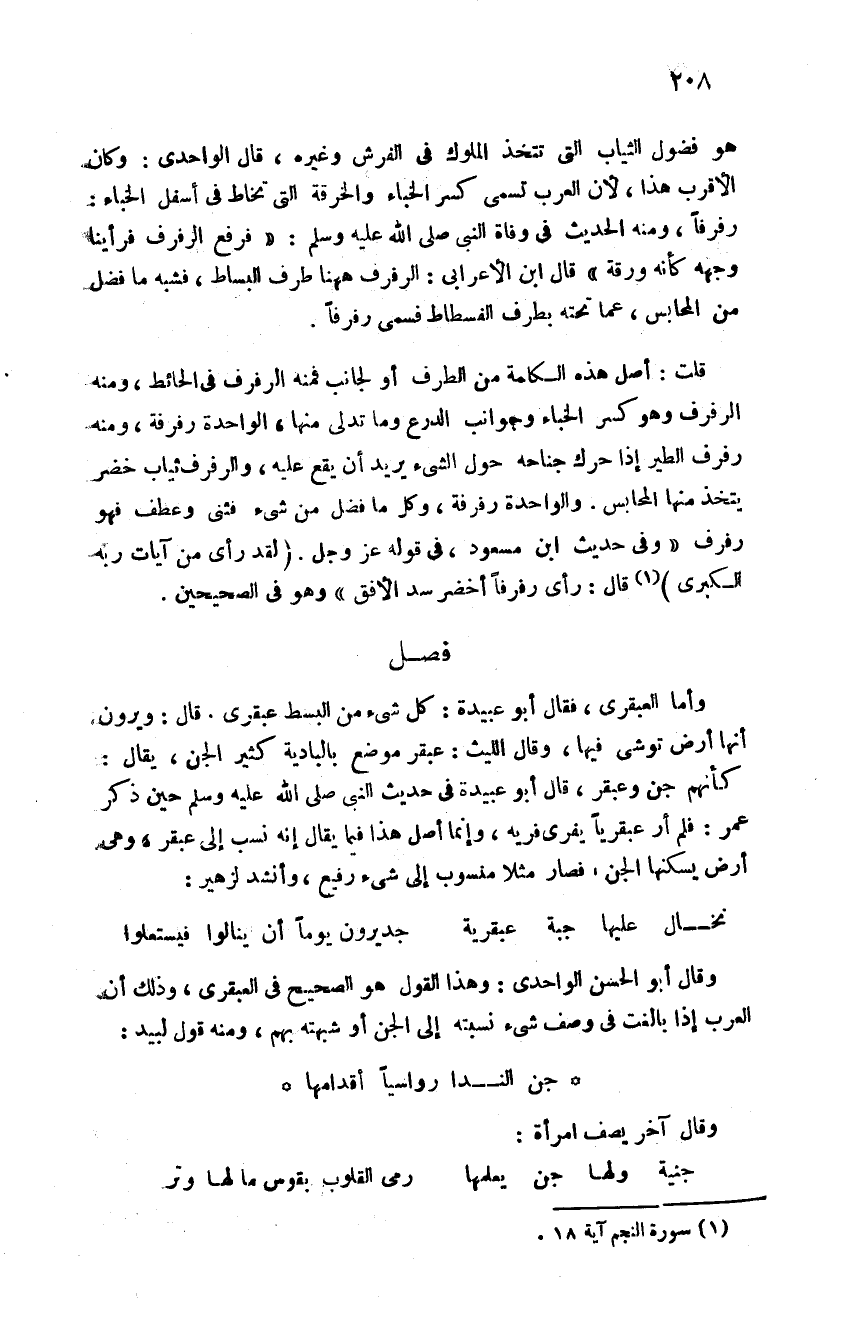 ٢٠٨
هو فضول الثياب التى تتخذ الملوك فى الفرش وغيره ، قال الواحدى : وكان
الأقرب هذا ، لأن العرب تسمى كسر الخباء والخرقة التى تخاط فى أسفل الخباء :
رفرفاً ، ومنه الحديث فى وفاة النبى صلى الله عليه وسلم : « فرفع الرفرف فرأينا
وجهه كأنه ورقة » قال ابن الأعرابى : الرفرف ههنا طرف البساط ، فشبه ما فضل
من المحابس ، عما تحته بطرف الفسطاط فسمى رفرفاً .
قلت : أصل هذه الكلمة من الطرف أو لجانب فمنه الرفرف فى الحائط ، ومنه
الرفرف وهو كسر الخباء وجوانب الدرع وما تدلى منها ، الواحدة رفرفة ، ومنه
رفرف الطير إذا حرك جناحه حول الشىء يريد أن يقع عليه ، والرفرف ثياب خضر
يتخذ منها المحابس . والواحدة رفرفة ، وكل ما فضل من شىء فثنى وعطف فهو
رفرف « وفى حديث ابن مسعود ، فى قوله عز وجل . ( لقد رأى من آيات ربه
الكبرى )(١) قال : رأى رفرفاً أخضر سد الأفق » وهو فى الصحيحين .
فصــل
وأما العبقرى ، فقال أبو عبيدة : كل شىء من البسط عبقرى . قال : ويرون
أنها أرض توشى فيها ، وقال الليث : عبقر موضع بالبادية كثير الجن ، يقال :
كأنهم جن وعبقر ، قال أبو عبيدة فى حديث النبى صلى الله عليه وسلم حين ذكر
عمر : فلم أر عبقرياً يفرى فريه ، وإنما أصل هذا فيما يقال إنه نسب إلى عبقر ، وهى
أرض يسكنها الجن ، فصار مثلا منسوب إلى شىء رفيع ، وأنشد لزهير :
نخــال عليها جبة عبقرية جديرون يوماً أن ينالوا فيستعلوا
وقال أبو الحسن الواحدى : وهذا القول هو الصحيح فى العبقرى ، وذلك أن
العرب إذا بالغت فى وصف شىء نسبته إلى الجن أو شبهته بهم ، ومنه قول لبيد :
* جن النــدا رواسياً أقدامها *
وقال آخر يصف امرأة :
جنية ولها جن يعلمها رمى القلوب بقوس ما لها وتر
(١) سورة النجم آية ١٨ .